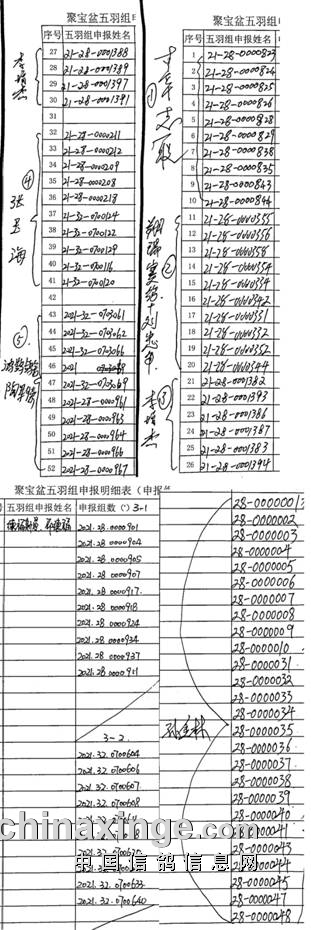 聚宝盆五羽组
序号 五羽组申报姓名
27 21-28-0001388
28 21-28-0001389
29 21-28-0001397
30 21-28-0001391
31
32 21-28-0000211
33 21-28-0000212
34 21-28-0000209
35 21-28-0000208
36 21-28-0000218
37 21-32-0700124
38 21-32-0700122
39 21-32-0700129
40 21-32-0700116
41 21-32-0700120
42
43 2021-32-0703061
44 2021-32-0703062
45 2021-32-0703066
46 2021
47 2021-32-0703069
48 2021-28-0000961
49 2021-28-0000963
50 2021-28-0000964
51 2021-28-0000966
52 2021-28-0000967
④
张玉海
⑤
聚宝盆五羽组
序号 五羽组申报姓名
1 21-28-0000823
2 21-28-0000824
3 21-28-0000825
4 21-28-0000826
5 21-28-0000828
6 21-28-0000829
7 21-28-0000838
8 21-28-0000835
9 21-28-0000843
10 21-28-0000844
11 21-28-0000355
12 21-28-0000356
13 21-28-0000358
14 21-28-0000354
15 21-28-0000334
16 21-28-0000342
17 21-28-0000331
18 21-28-0000332
19 21-28-0000352
20 21-28-0000344
21 21-28-0001382
22 21-28-0001393
23 21-28-0001386
24 21-28-0001387
25 21-28-0001383
26 21-28-0001394
①
②
③
聚宝盆五羽组申报明细表（申报
五羽组申报姓名 申报组数（）3-1
2021.28.0000901
2021.28.0000904
2021.28.0000905
2021.28.0000907
2021.28.0000917
2021.28.0000918
2021.28.0000924
2021.28.0000934
2021.28.0000937
2021.28.0000911
3-2
2021.32.0700604
2021.32.0700606
2021.32.0700607
2021.32.0700608
2021.32.0700633
2021.32.0700640
28-0000001
28-0000002
28-0000003
28-0000004
28-0000005
28-0000006
28-0000007
28-0000008
28-0000009
28-0000010
28-0000031
28-0000032
28-0000033
28-0000034
28-0000035
28-0000036
28-0000037
28-0000038
28-0000039
28-0000040
28-0000041
28-0000043
28-0000044
28-0000045
28-0000047
28-0000048
chinaxinge.com
中国信鸽信息网